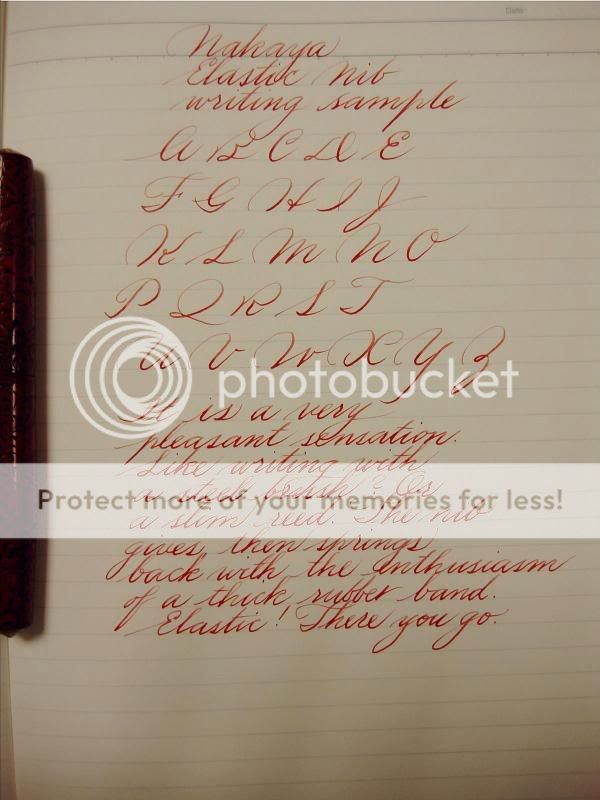 Date
Nakaya
Elastic Nib
writing sample
A B C D E
F G H I J
K L M N O
P Q R S T
U V W X Y Z
photobucket
It is a very
pleasant sensation.
Like writing with
a steel brush? Or
Protect more of your memories for less!
a slim reed. The nib
gives, then springs
back with the enthusiasm
of a thick rubber band.
Elastic! There you go.